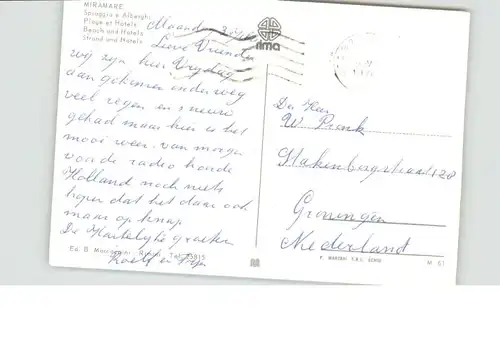 MIRAMARE
Spiaggia e Alberghi
Plage et Hotels
Beach and Hotels
Strand und Hotels
rima
Maandag
Lieve Vrienden
wij zijn hier Vrydag
aan gekomen onderweg
veel regen en sneeuw
gehad maar hier is het
mooi weer. van morgen
voor de radio hoorde
Holland noch niets
hopen dat het daar ook
maar op knap
De Hartelijke groeten
Roelf en
Den Heer
W. Pronk
Stakenborgstraat 128
Groningen
Nederland
M 61